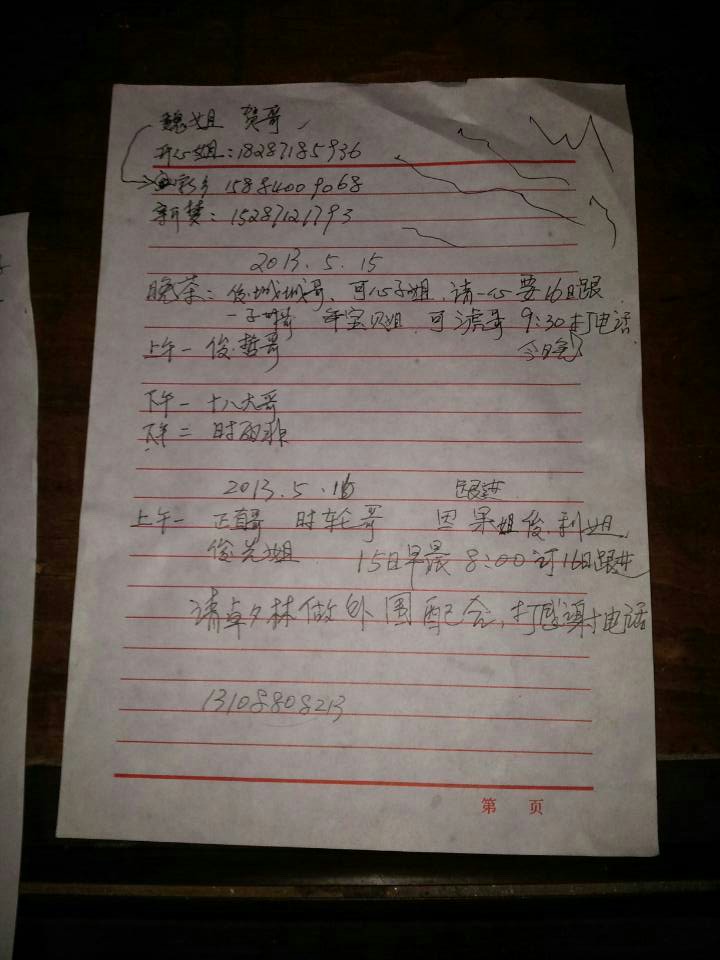 魏姐 贺哥
开心姐:18287185936
新乡 15884009068
新梦:15287121793
2013.5.15
晚茶:俊城城哥、可心子姐,请一心要16日跟
宝贝姐 可 哥 9:30打电话
上午一 俊哲哥 今日晚
下午一 十八大哥
下午二 时雨非
2013.5.16 跟进
上午一 正真哥 时轮哥 因果姐 俊利姐
俊先姐 15日早晨8:00订16日跟进
请卓夕林做外围配合,打感谢电话
13108808213
第 页